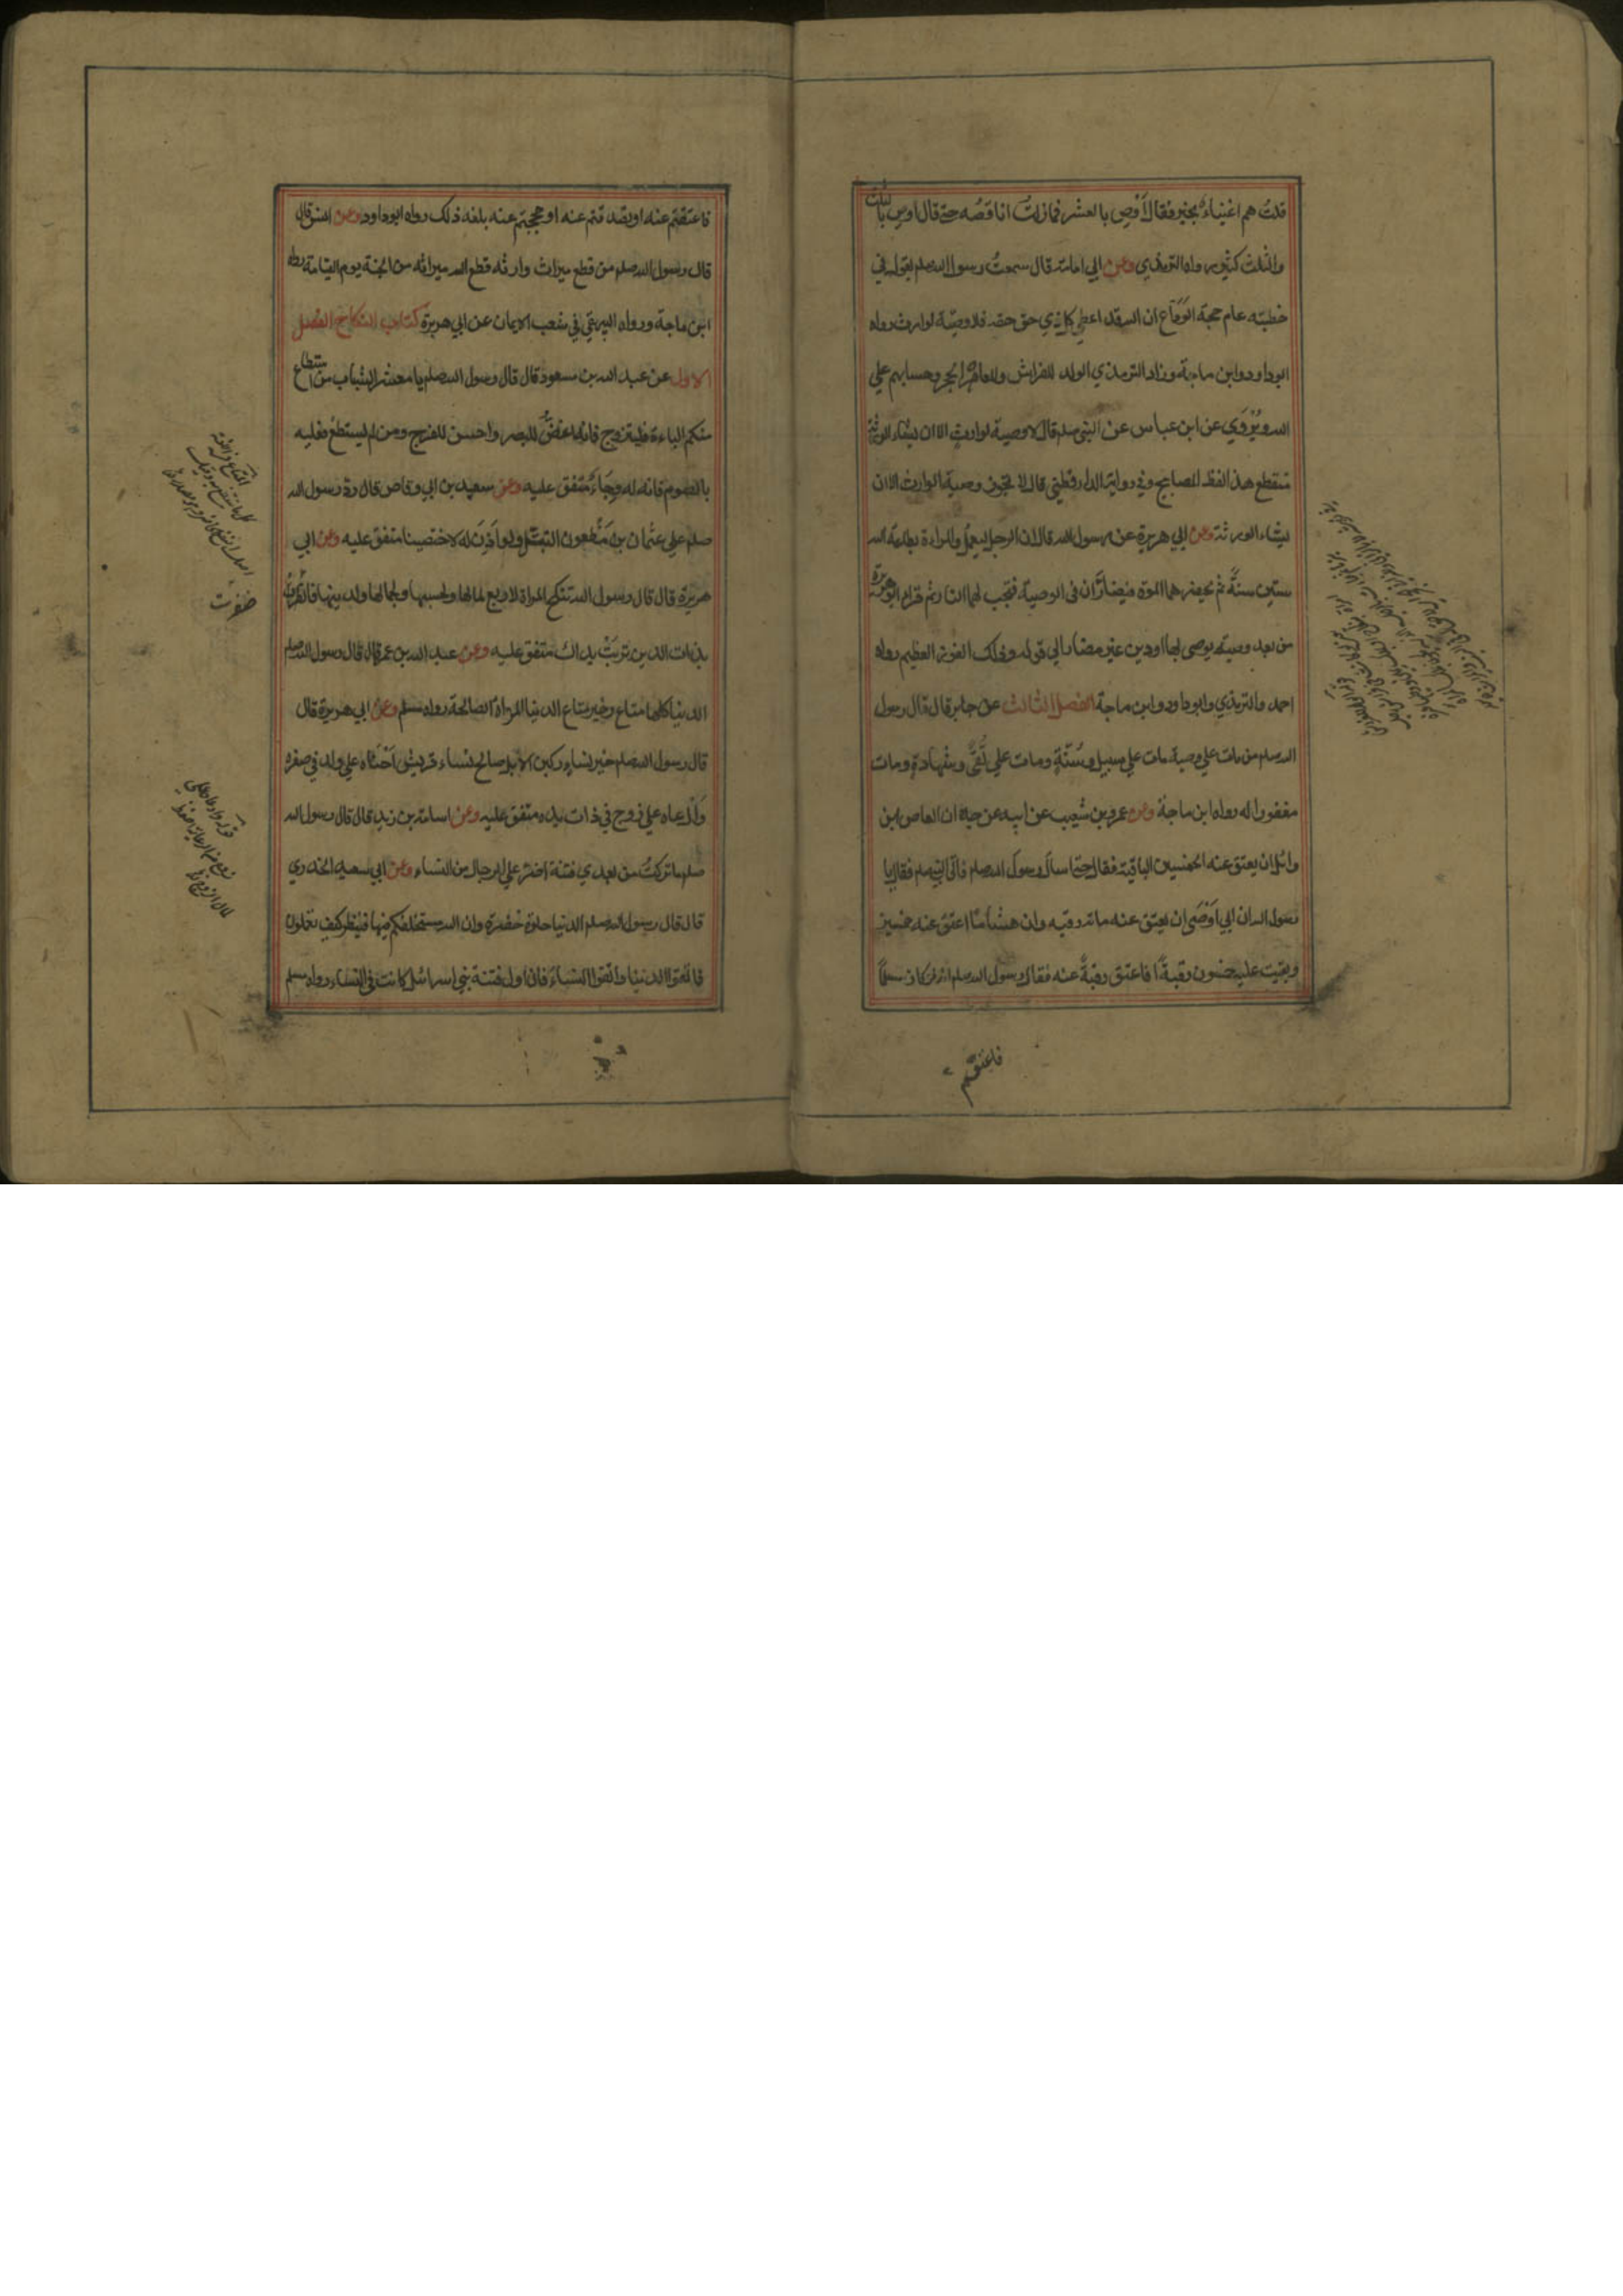 قلتُ هم اغنياءُ بخير فقال اَوْصِ بالعشر فمازلتُ اناقصُه حتى قال اوصِ بالثلث
والثلث كثير رواه الترمذي وعن ابي امامة قال سمعتُ رسول الله صلم يقول في
خطبته عام حجة الوَدَاع ان الله قد اعطى كل ذي حق حقه فلا وصيّة لوارث رواه
ابوداود وابن ماجة وزاد الترمذي الولد للفراش وللعاهر الحجر وحسابهم علي
الله ويُرْوَي عن ابن عباس عن النبي صلم قال لا وصية لوارثٍ الا ان يشاء الورثة
منقطع هذا لفظ المصابيح وفي رواية الدارقطني قال لا تجوز وصية لوارث الا ان
يشاء الورثة وعن ابي هريرة عن رسول الله قال ان الرجل ليعمل والمراءة بطاعة الله
ستين سنةً ثم يحضرهما الموة فيضارَّان في الوصية فتجب لهما النار ثم قراء ابوهريرة
من بعد وصية يوصى بها اودين غير مضار الي قوله وذلك الفوز العظيم رواه
احمد والترمذي وابوداود وابن ماجة الفصل الثالث عن جابر قال قال رسول
الله صلم من مات علي وصية مات علي سبيل وسُنّةٍ ومات علي تُقًى وشهادةٍ ومات
مغفورا له رواه ابن ماجة وعن عمرو بن شعيب عن ابيه عن جده ان العاص ابن
وائل ان يعتق عنه الخمسين الباقية فقال حتى اسأل رسول الله صلم فاتى النبي صلم فقال يا
رسول الله ان ابي اَوْصَى ان يعتق عنه مائة رقبة وان هشامًا اعتق عنه خمسين
وبقيت عليه خمسون رقبةً افاعتق رقبةً عنه فقال رسول الله صلم انه لو كان مسلمًا
فاعتقتم
فاعتقتم عنه او تصدقتم عنه او حججتم عنه بلغه ذلك رواه ابوداود وعن انس قال
قال رسول الله صلم من قطع ميراث وارثه قطع الله ميراثه من الجنة يوم القيامة رواه
ابن ماجة ورواه البيهقي في شعب الايمان عن ابي هريرة كتاب النكاح الفصل
الاول عن عبد الله بن مسعود قال قال رسول الله صلم يا معشر الشباب من استطاع
منكم الباءة فليتزوج فانه اغضُّ للبصر واحسن للفرج ومن لم يستطع فعليه
بالصوم فانه له وِجَاءٌ متفق عليه وعن سعيد بن ابي وقاص قال ردّ رسول الله
صلم علي عثمان بن مَظْعون التبتّل ولو اَذِنَ له لاختصينا متفق عليه وعن ابي
هريرة قال قال رسول الله تنكح المراة لاربع لمالها ولحسبها ولجمالها ولدينها فاظفر
بذات الدين تربَتْ يداك متفق عليه وعن عبد الله بن عمر قال قال رسول الله صلم
الدنيا كلها متاع وخير متاع الدنيا المراة الصالحة رواه مسلم وعن ابي هريرة قال
قال رسول الله صلم خير نساءٍ ركبن الابل صالح نساء قريش اَحْنَاه علي ولد في صغره
وَاَرْعاه علي زوج في ذات يده متفق عليه وعن اسامة بن زيد قال قال رسول الله
صلم ما تركتُ من بعدي فتنة اضر علي الرجال من النساء وعن ابي سعيد الخدري
قال قال رسول الله صلم الدنيا حلوة خضرة وان الله مستخلفكم فيها فينظر كيف تعملون
فاتقوا الدنيا واتقوا النساءَ فان اول فتنة بني اسرائيل كانت في النساء رواه مسلم